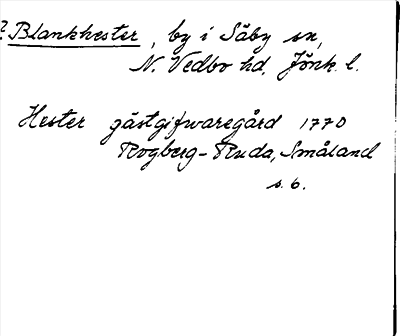 ? Blankhester, by i Säby sn,
N. Vedbo hd, Jönk. l.
Hester gästgifwaregård 1770
Rogberg-Ruda, Småland
s. 6.